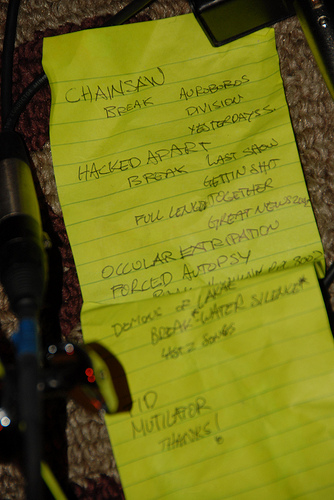 CHAINSAW
BREAK AUROBOROS
DIVISION
YESTERDAYS
HACKED APART
BREAK LAST SHOW
GETTIN SHIT
TOGETHER
FULL LENGTH
GREAT NEWS
OCCULAR EXTRIPATION
FORCED AUTOPSY
DEMONS OF
BREAK WATER SILENCE
LAST 2 SONGS
MUTILATOR
THANKS!